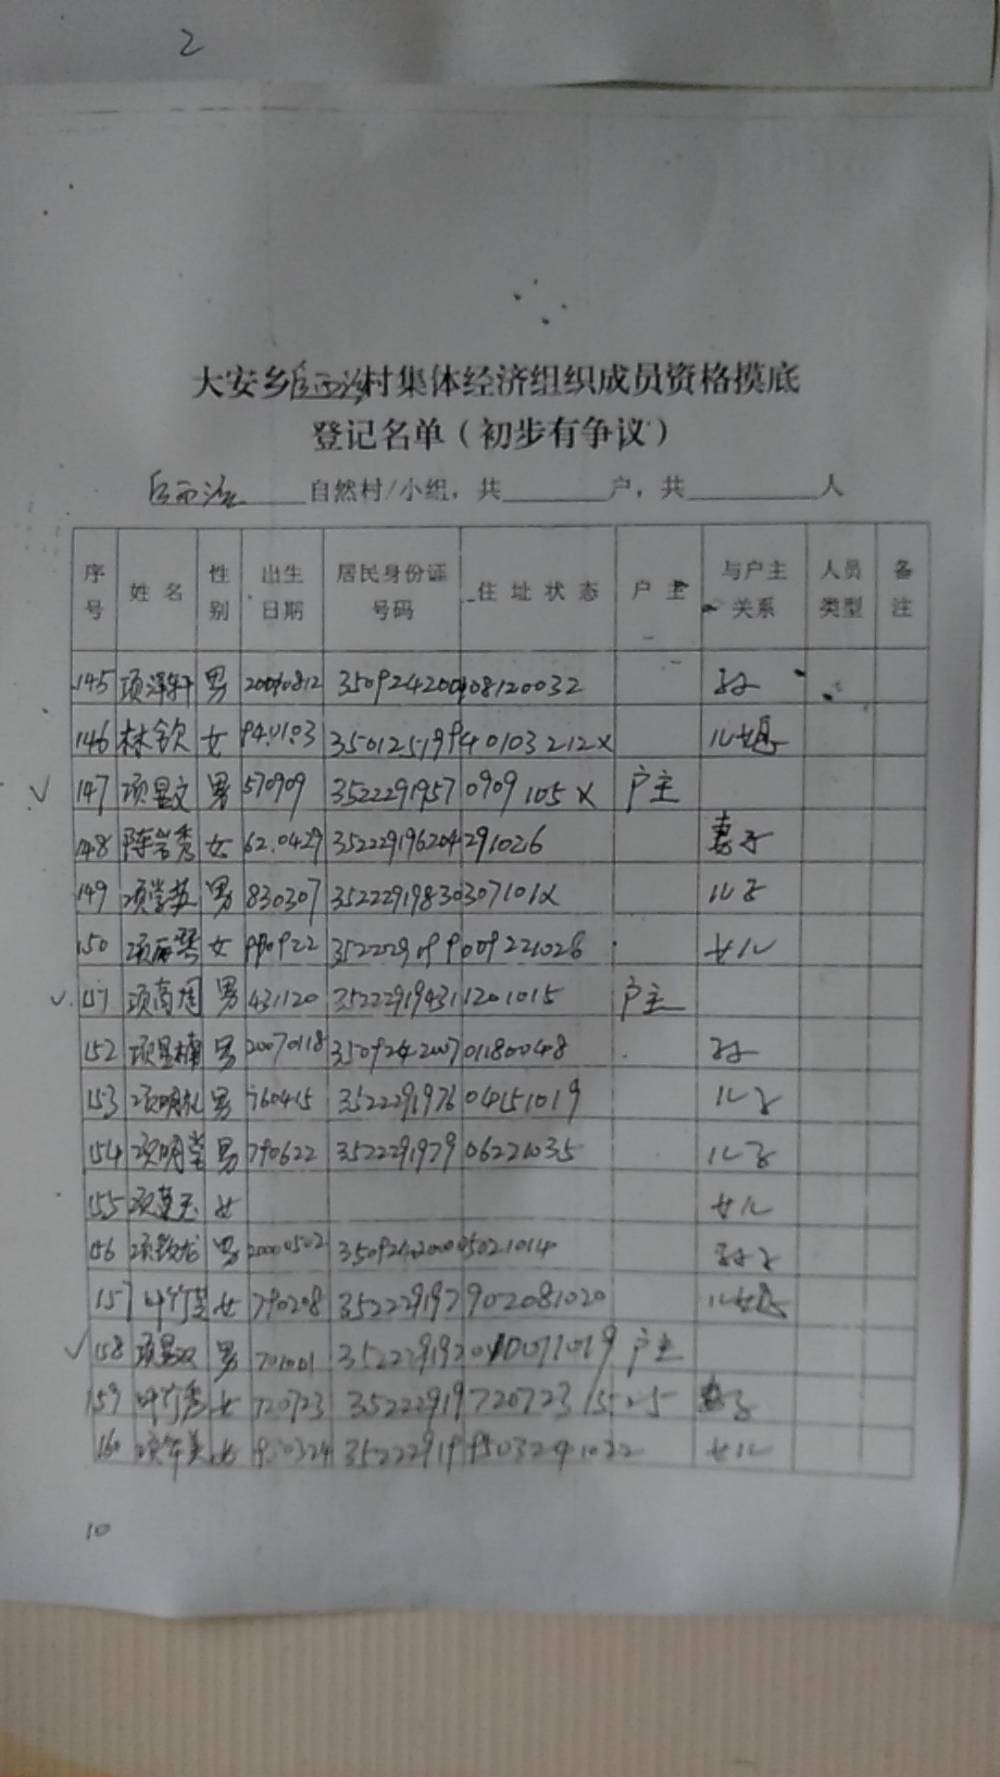 2
大安乡后西溪村集体经济组织成员资格摸底
登记名单（初步有争议）
后西溪 自然村/小组，共 户，共 人
序号 姓名 性别 出生日期 居民身份证号码 住址状态 户主 与户主关系 人员类型 备注
145 项泽轩 男 350924200908120032 孙
146 林钦 女 940103 35012519940103212X 儿媳
147 项显文 男 570909 35222919570909105X 户主
148 陈岩秀 女 62.0429 352229196204291026 妻子
149 男 830307 35222919830307101X 儿子
150 女 990922 女儿
151 项高周 男 431120 352229194311201015 户主
152 项显楠 男 20070118 350924200701180048 孙
153 项明礼 男 760415 352229197604151019 儿子
154 项明堂 男 790622 352229197906221035 儿子
155 女 女儿
156 男 20000502 350924200005021014 孙子
157 女 790208 352229197902081020 儿媳
158 男 701001 户主
159 叶竹秀 女 720723 妻子
160 女 950324 352229199503241022 女儿
10